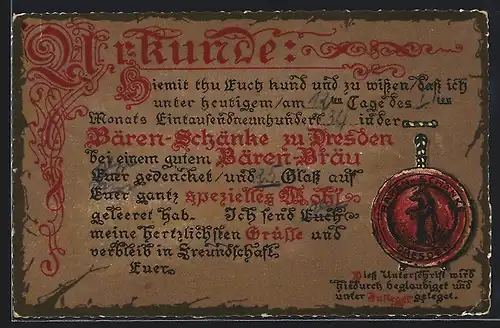 Urkunde:
Hiemit thu Euch kund und zu wißen/daß ich
unter heutigem/am 12ten Tage des 1ten
Monats Eintausendneunhundert 34 in der
Bären-Schänke zu Dresden
bei einem gutem Bären-Bräu
Euer gedencket/und 25 Glaß auf
Euer gantz spezielles Wohl
geleeret hab. Ich send Euch
meine hertzlichsten Grüsse und
verbleib in Freundschaft
Euer
BÄREN-SCHÄNKE
DRESDEN
Dieß Unterschrift wird
hiedurch beglaubiget und
unter Insiegel geleget.